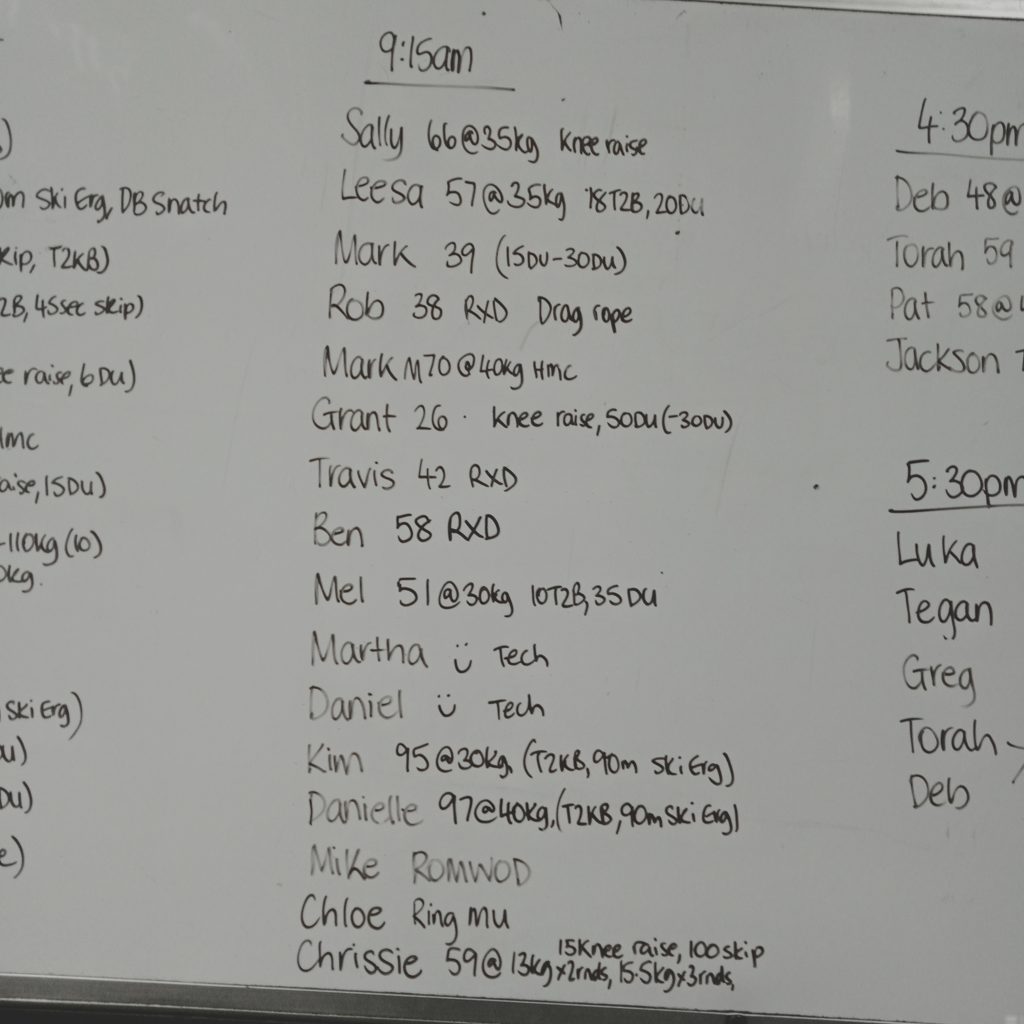 9:15am
Sally 66@35kg Knee raise
Leesa 57@35kg 18T2B, 20DU
Mark 39 (15DU-30DU)
Rob 38 RXD Drag rope
Mark M 70@40kg HMC
Grant 26 · knee raise, 50DU(-30DU)
Travis 42 RXD
Ben 58 RXD
Mel 51@30kg 10T2B, 35DU
Martha Tech
Daniel Tech
Kim 95@30kg, (T2KB, 90m Ski Erg)
Danielle 97@40kg, (T2KB, 90m Ski Erg)
Mike ROMWOD
Chloe Ring MU
15 Knee raise, 100 skip
Chrissie 59@13kg x 2rnds, 15.5kg x 3rnds,
Ski Erg, DB Snatch
T2KB)
45sec skip)
raise, 6DU)
15DU)
-110kg (10)
Ski Erg)
4:30pm
Deb 48@
Torah 59
Pat 58@
Jackson
5:30pm
Luka
Tegan
Greg
Torah
Deb